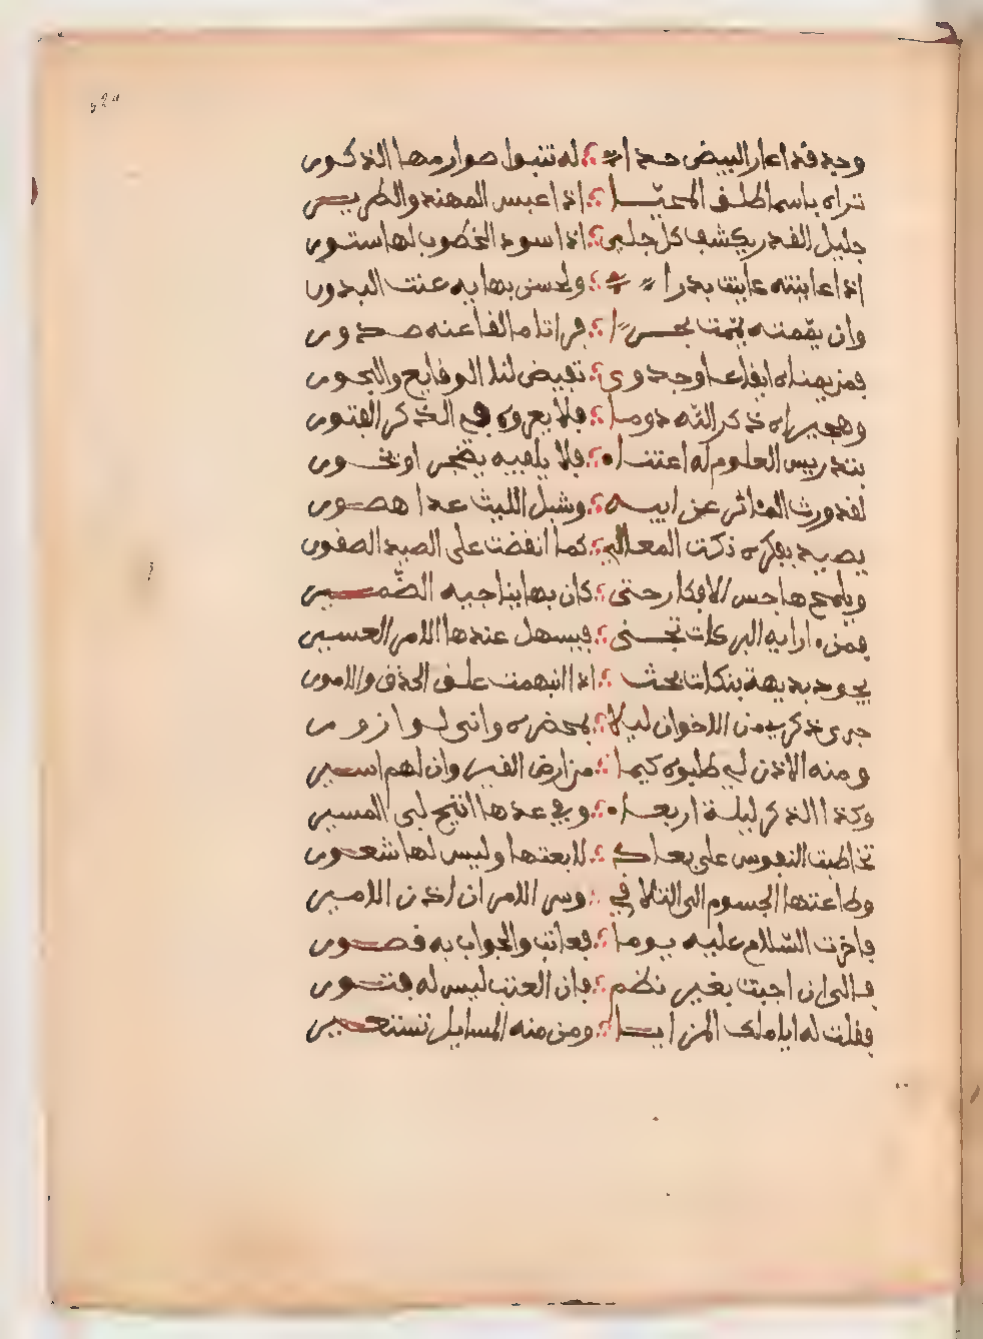 وجد قد اعار البيض حدا له تنبوا صوارمها الذكور
تراه باسما طلق المحيا اذا عبس المهند والطرير
جليل القدر يكشف كل جلى اذا سود الخطوب لها ستور
اذا عاينته عاينت بدرا ولحسن بهايه عنت البدور
وان يممته يممت بحرا فراتا ما لفا عنه صدور
فمن يمناه ايفاعا وجدوى تفيض لنا الوقايع والبحور
وهجيراه ذكر الله دوما فلا يعروه في الذكر الفتور
بتدريس العلوم له اعتناه فلا يلفيه يضجر او يخور
لقد ورث المئاثر عن ابيه وشبل الليث عدا هصور
يصيد بفكره ذكت المعالي كما انقضت على الصيد الصقور
ويلمح هاجس الافكار حتى كان بها يناجيه الضمير
فمن ءارايه البركات تجنى فيسهل عندها الامر العسير
يجود بديهة بنكات بحث اذا انبهمت على الحذق الامور
جرى ذكري من الاخوان ليلا بمحضره واني لو ازور
ومنه الاذن لي طلبوه كيما من ارض القبر وان لهم اسير
وكذا الذكر ليلة اربعاه وفي غدها اتيح لي المسير
تخاطبت النفوس على بعاد لابعتها وليس لها شعور
وطاعتها الجسوم الى التلاقي وسر الامر ان اذن الامير
فاخرت السلام عليه يوما فعاتب والجواب به قصور
فقالى ان اجبت بغير نظم فان العتب ليس له فتور
فقلت له ايا ملك المزايا ومن منه المسايل تستنير